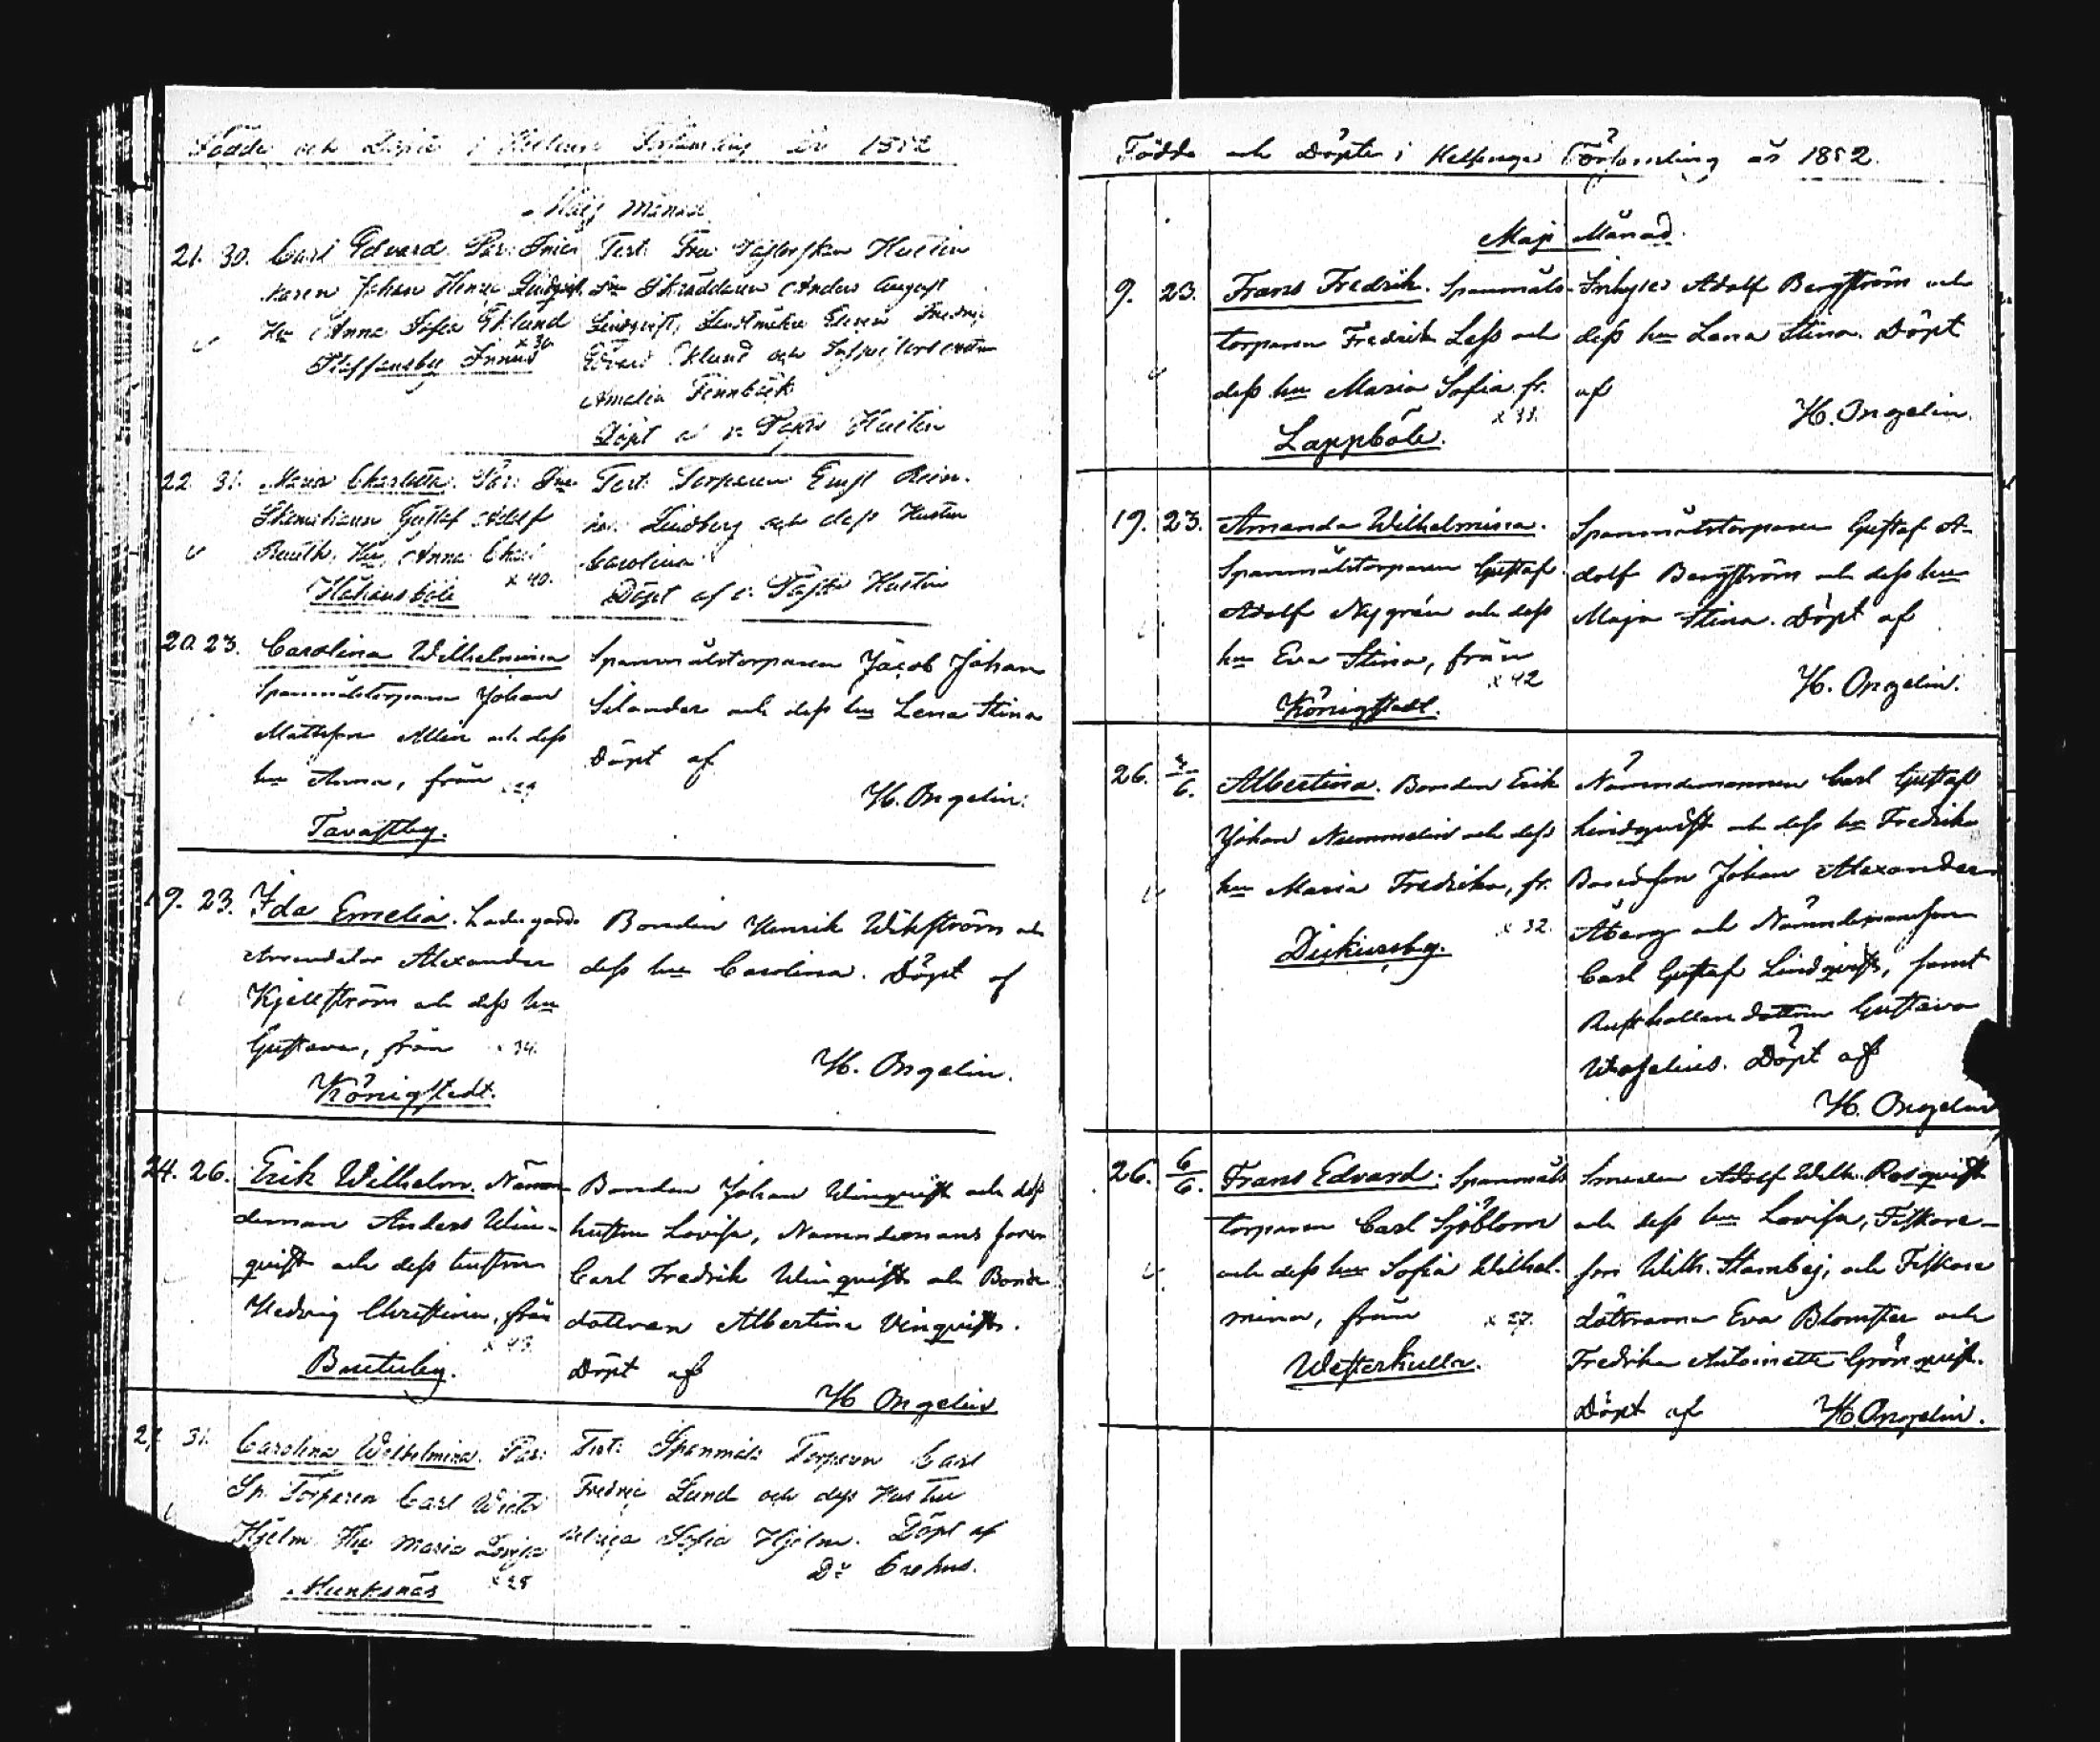 Födde och Döpte i Helsinge Församling år 1852
Maij månad
21. 30. Carl Edvard. Par: Snic Test: Fru Pastorskan Hustin
karen Johan Henric Lindqvist Skräddaren Anders August
Hu Anna Sofia Eklund Lindqvist,
x 30. Edvard Eklund och
Staffansby Amalia Fennbäck
Döpt af v. Pastor Hustin
22. 31. Maria Charlotta. Par: Test: Torparen Ernst Rein-
Gustaf Adolf hol. Lindberg och dess Hustru
Reuth, Hu Anna Carolina
x 40. Döpt af v. Pastor Hustin
Håkansböle
20. 23. Carolina Wilhelmina Spannmålstorparen Jacob Johan
Spannmålstorparen Johan Silander och dess hu Lena Stina
Mattsson och dess Döpt af
hu Anna, från x 29 H. Ongelin.
Tavastby.
19. 23. Ida Emelia. Ladugårds Bonden Henrik Wikström och
Arrendator Alexander dess hu Carolina. Döpt af
Kjellström och dess hu
Gustava, från x 34. H. Ongelin.
Königstedt.
24. 26. Erik Wilhelm. Nämn- Bonden Johan Winqvist och dess
deman Anders Win- hustru Lovisa, Nämndemans sonen
qvist och dess hustru Carl Fredrik Winqvist och Bonde
Hedvig Christina, från dottren Albertina Vinqvist.
x 43. Döpt af
Baetuby. H Ongelin
27. 31. Carolina Wilhelmina. Par: Test: Spanmåls Torparen Carl
Sp. Torparen Carl Fredric Lund och dess Hustru
Hjelm Hu Maria Lovisa Ulrica Sofia Hjelm. Döpt af
x 28 Dr Crohns.
Munksnäs
Födde och Döpte i Helsinge Församling år 1852.
Maji Månad.
9. 23. Frans Fredrik. Spannmåls- Inhyses Adolf Bergström och
torparen Fredrik Lass och dess hu Lena Stina. Döpt
dess hu Maria Sofia fr. af
x 33. H. Ongelin.
Lappböle.
19. 23. Amanda Wilhelmina. Spannmålstorparen Gustaf A-
Spannmålstorparen Gustaf dolf Bergström och dess hu
Adolf Nygrén och dess Maja Stina. Döpt af
hu Eva Stina, från
x 42 H. Ongelin.
Königstedt.
26. 3/6. Albertina. Bonden Erik Nämndemannen Carl Gustaf
Johan Nummelin och dess Lindqvist och dess hu Fredrika
hu Maria Fredrika, fr. Bondeson Johan Alexander
x 32. Åberg och Nämndemanson
Dickursby. Carl Gustaf Lindqvist, samt
Rusthållaredottren Gustava
Waselius. Döpt af
H. Ongelin
26. 6/6. Frans Edvard. Spannmåls Smeden Adolf Wilh. Rosqvist
torparen Carl Sjöblom och dess hu Lovisa, Fiskare-
och dess hu Sofia Wilhel- son Wilh. Stambej, och Fiskare
mina, från x 27. döttrarna Eva Blomster och
Westerkulla. Fredrika Antoinette Grönqvist.
Döpt af H. Ongelin.